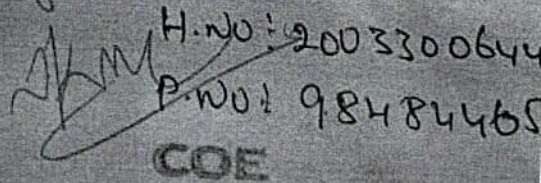 H.NO: 2003300644
P.NO: 98484465
COE